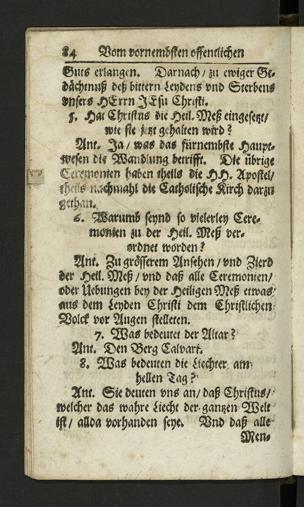 84 Vom vornembsten offentlichen
Guts erlangen. Darnach / zu ewiger Ge-
dächtnuß deß bittern Leydens vnd Sterbens
vnsers HErrn JEsu Christi.
5. Hat Christus die Heil. Meß eingesetzt /
wie sie jetzt gehalten wird?
Ant. Ja / was das fürnembste Haupt-
wesen die Wandlung betrifft. Die übrige
Ceremonien haben theils die HH. Apostel /
theils nachmahl die Catholische Kirch darzu
gethan.
6. Warumb seynd so vielerley Cere-
monien zu der Heil. Meß ver-
ordnet worden?
Ant. Zu grösserem Ansehen / vnd Zierd
der Heil. Meß / vnd daß alle Ceremonien /
oder Uebungen bey der Heiligen Meß etwas
aus dem Leyden Christi dem Christlichen
Volck vor Augen stelleten.
7. Was bedeutet der Altar?
Ant. Den Berg Calvari.
8. Was bedeuten die Liechter am
hellen Tag?
Ant. Sie deuten vns an / daß Christus /
welcher das wahre Liecht der gantzen Welt
ist / allda vorhanden seye. Vnd daß alle
Men-